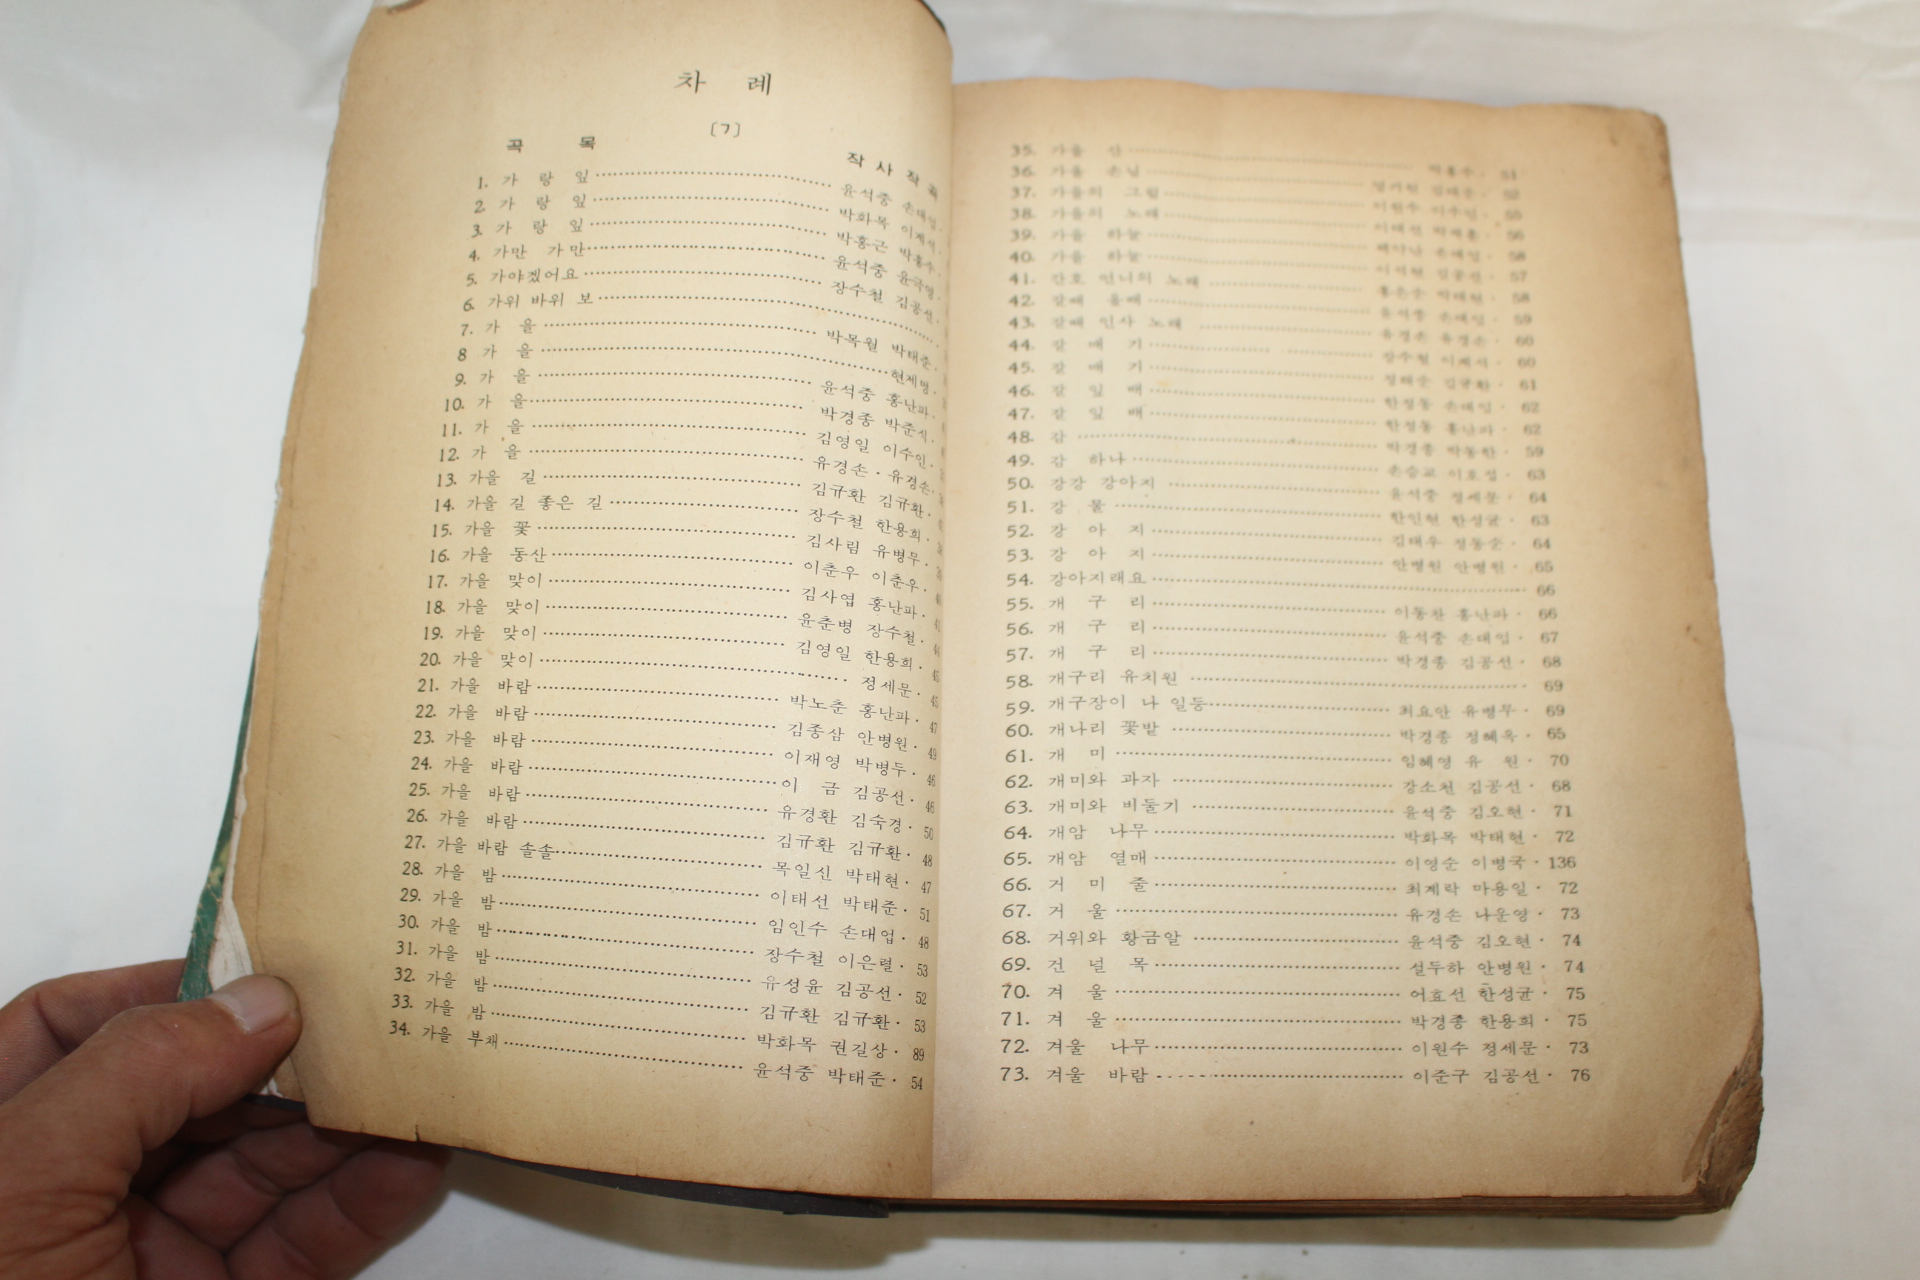 차 례
〔ㄱ〕
곡 목 작 사 작 곡
1. 가 랑 잎 윤석중 손대업
2. 가 랑 잎 박화목 이계석
3. 가 랑 잎 박홍근 박흥수
4. 가만 가만 윤석중 윤극영
5. 가야겠어요 장수철 김공선
6. 가위 바위 보
7. 가 을 박목월 박태준
8 가 을 현제명
9. 가 을 윤석중 홍난파
10. 가 을 박경종 박준식
11. 가 을 김영일 이수인
12. 가 을 유경손 · 유경손
13. 가을 길 김규환 김규환
14. 가을 길 좋은 길 장수철 한용희
15. 가을 꽃 김사림 유병무
16. 가을 동산 이춘우 이춘우
17. 가을 맞이 김사엽 홍난파
18. 가을 맞이 윤춘병 장수철
19. 가을 맞이 김영일 한용희
20. 가을 맞이 정세문 · 45
21. 가을 바람 박노춘 홍난파 · 47
22. 가을 바람 김종삼 안병원 · 49
23. 가을 바람 이재영 박병두 · 46
24. 가을 바람 이 금 김공선 · 46
25. 가을 바람 유경환 김숙경 · 50
26. 가을 바람 김규환 김규환 · 48
27. 가을 바람 솔솔 목일신 박태현 · 47
28. 가을 밤 이태선 박태준 · 51
29. 가을 밤 임인수 손대업 · 48
30. 가을 밤 장수철 이은렬 · 53
31. 가을 밤 유성윤 김공선 · 52
32. 가을 밤 김규환 김규환 · 53
33. 가을 밤 박화목 권길상 · 89
34. 가을 부채 윤석중 박태준 · 54
35. 가을 산 51
36. 가을 손님 52
37. 가을의 그림
38. 가을의 노래 56
39. 가을 하늘 58
40. 가을 하늘 57
41. 간호 언니의 노래 58
42. 갈매 59
43. 갈매 인사 노래 유경손 유경손 · 60
44. 갈 매 기 장수철 이계석 · 60
45. 갈 매 기 정태순 김규환 · 61
46. 갈 잎 배 한정동 손대업 · 62
47. 갈 잎 배 한정동 홍난파 · 62
48. 감 박경종 박동한 · 59
49. 감 하나 손승교 이호섭 · 63
50. 강강 강아지 윤석중 정세문 · 64
51. 강 물 한인현 한성균 · 63
52. 강 아 지 김태우 정동순 · 64
53. 강 아 지 안병원 안병원 · 65
54. 강아지래요 66
55. 개 구 리 이동찬 홍난파 · 66
56. 개 구 리 윤석중 손대업 · 67
57. 개 구 리 박경종 김공선 · 68
58. 개구리 유치원 69
59. 개구장이 나 일등 최요안 유병무 · 69
60. 개나리 꽃밭 박경종 정혜옥 · 65
61. 개 미 임혜영 유 원 · 70
62. 개미와 과자 강소천 김공선 · 68
63. 개미와 비둘기 윤석중 김오현 · 71
64. 개암 나무 박화목 박태현 · 72
65. 개암 열매 이영순 이병국 · 136
66. 거 미 줄 최계락 마용일 · 72
67. 거 울 유경손 나운영 · 73
68. 거위와 황금알 윤석중 김오현 · 74
69. 건 널 목 설두하 안병원 · 74
70. 겨 울 어효선 한성균 · 75
71. 겨 울 박경종 한용희 · 75
72. 겨울 나무 이원수 정세문 · 73
73. 겨울 바람 이준구 김공선 · 76